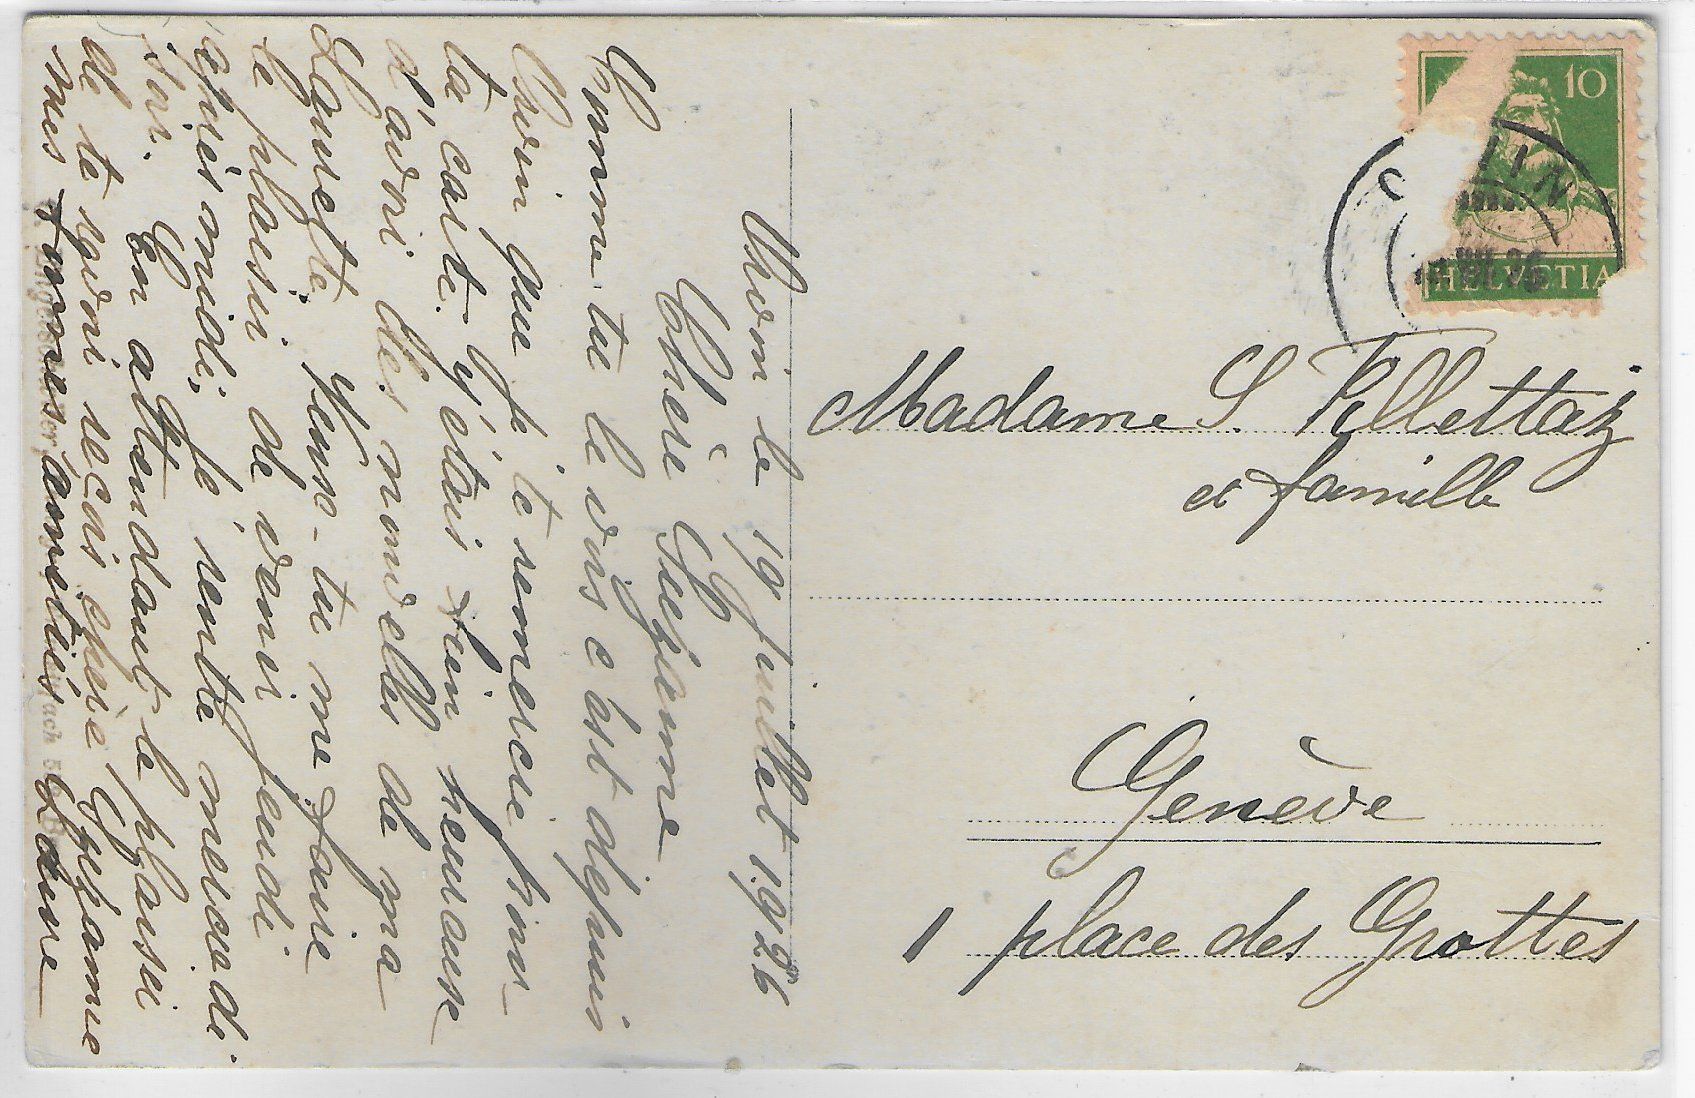 Uvrin le 19 juillet 1926
Chère Suzanne
Comme tu le vois c'est depuis
Uvrin que je te remercie pour
ta carte. J'étais bien heureuse
d'avoir des nouvelles de ma
Lauvette. Pense-tu me faire
le plaisir de venir jeudi
après midi, je rentre mercredi
soir. En attendant le plaisir
de te revoir reçois chère Suzanne
mes bonnes amitiés Laure
HELVETIA
10
Madame S. Pillettaz
et famille
Genève
1 place des Grottes